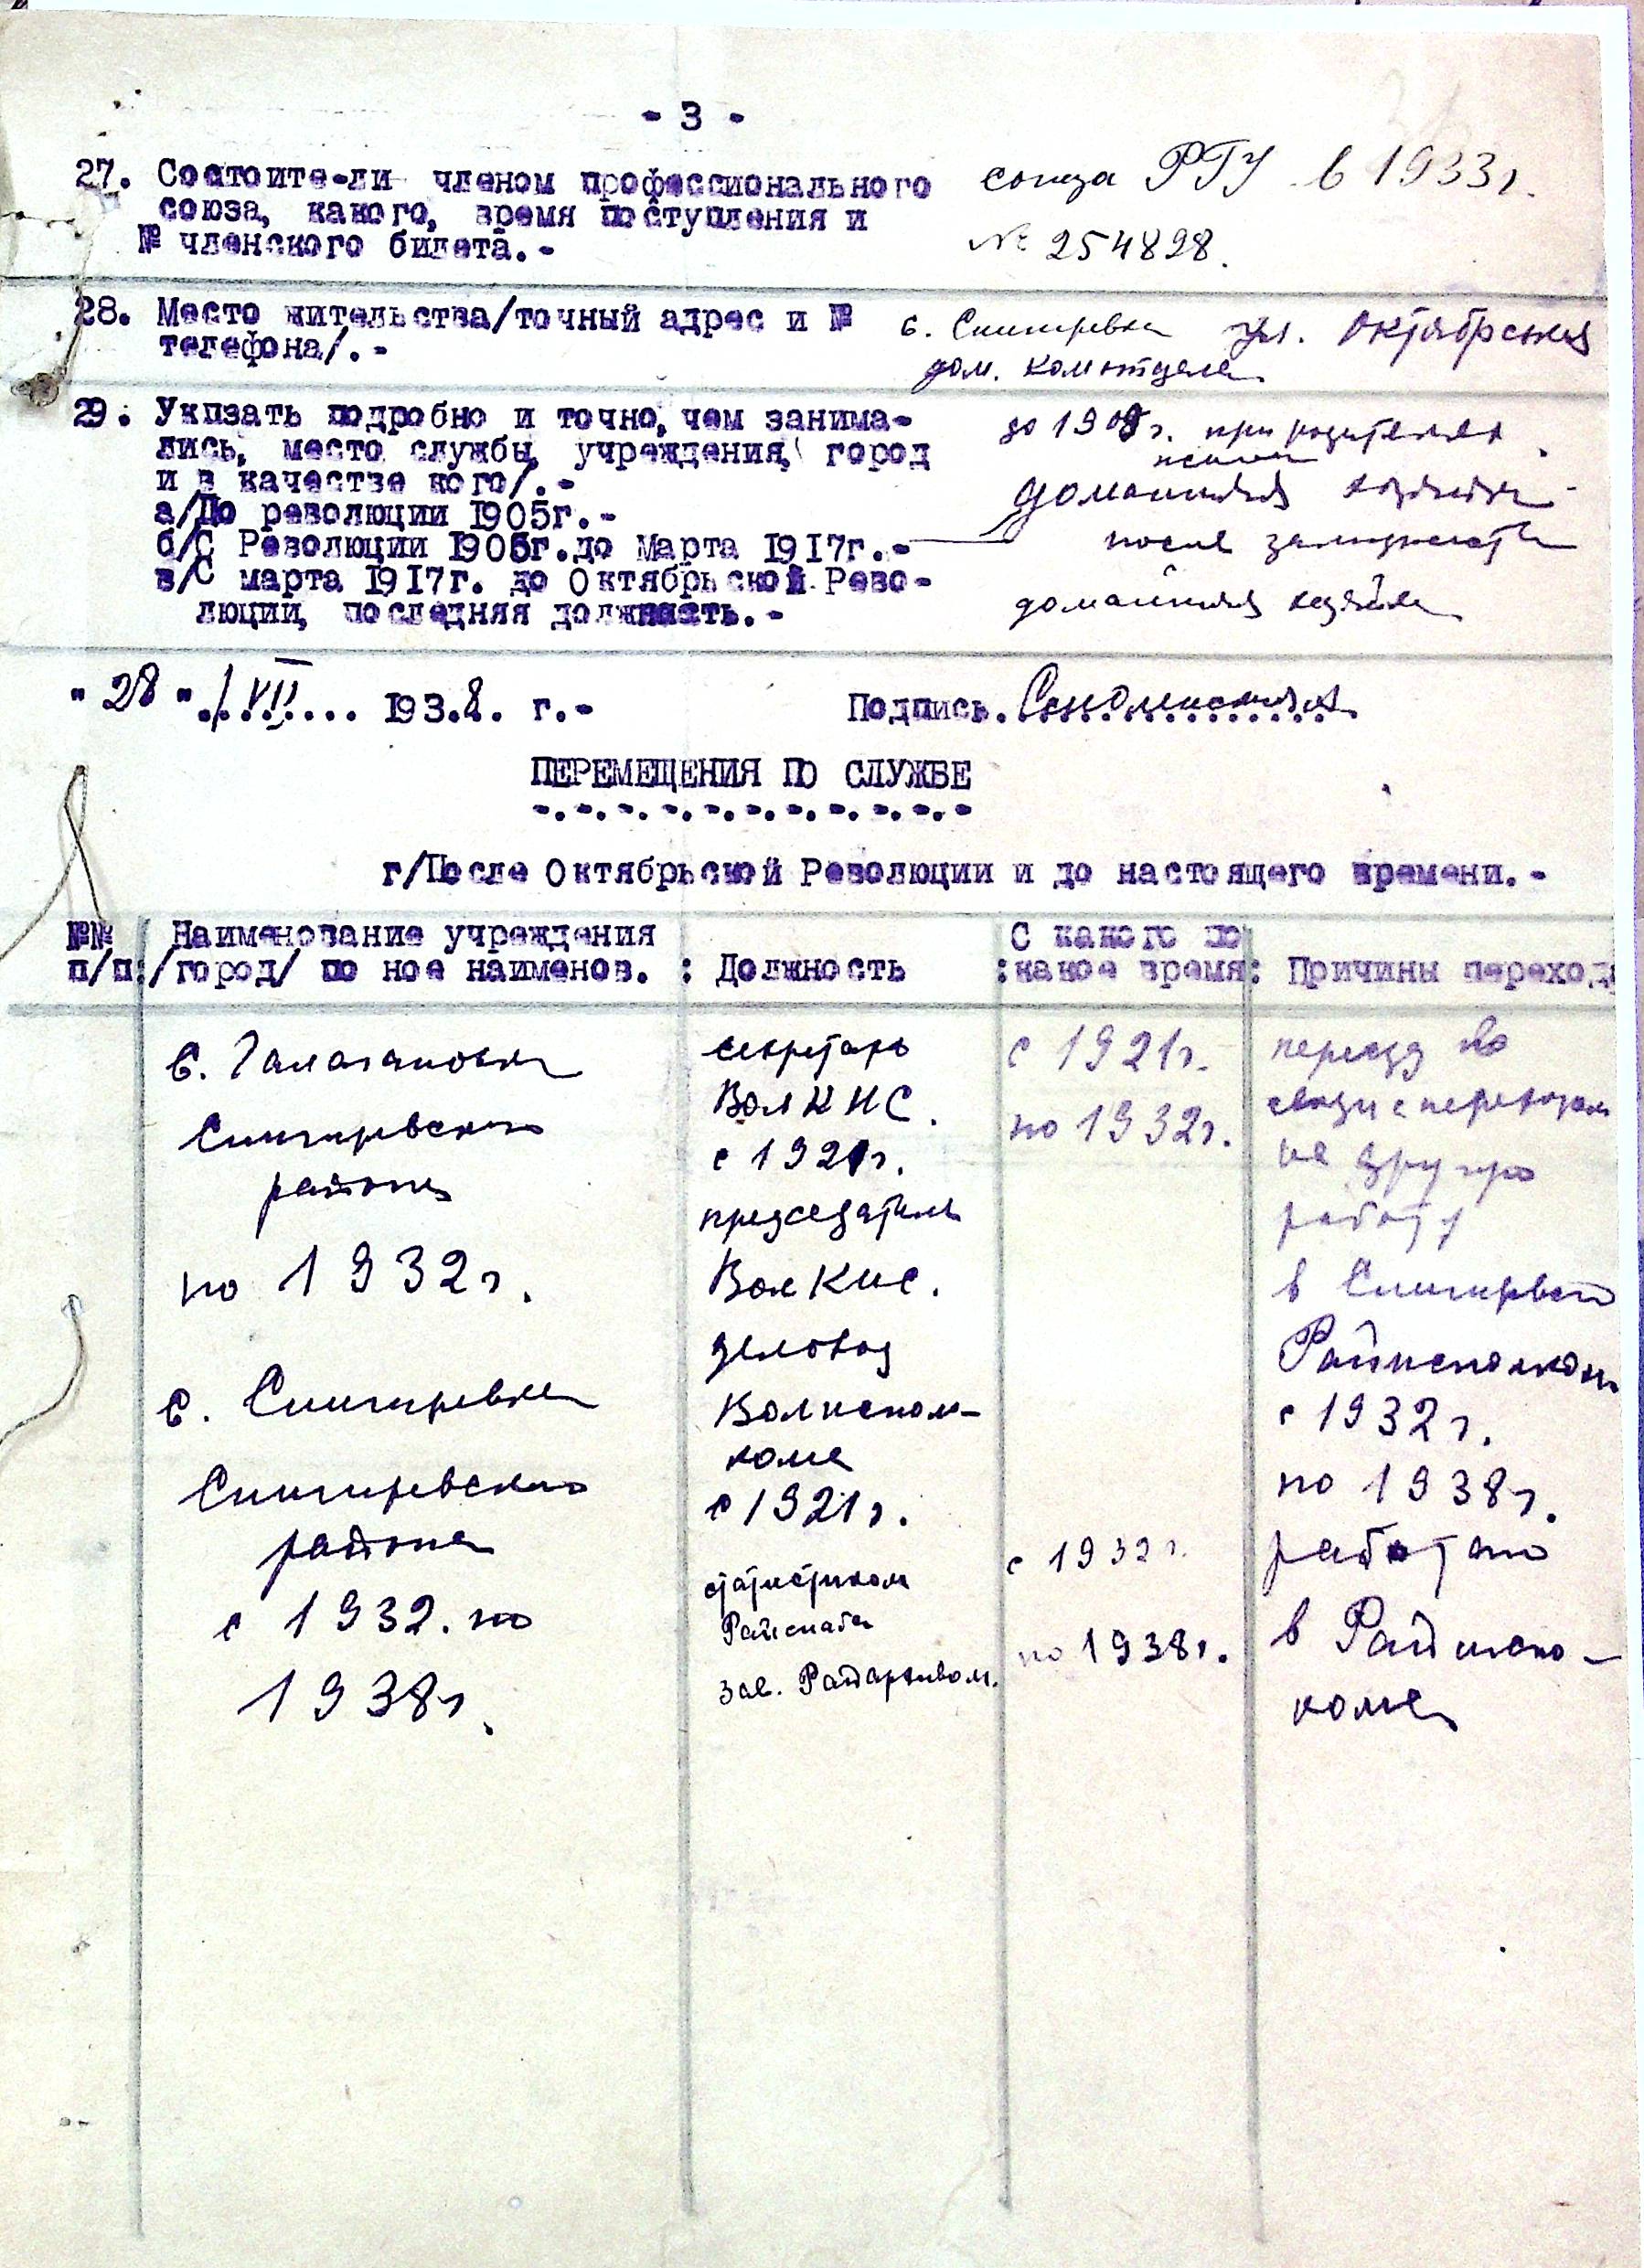 - 3 -
27. Состоите-ли членом профессионального
союза, какого, время поступления и
№ членского билета.-
союза РГУ в 1933 г.
№ 254828.
28. Место жительства/точный адрес и №
телефона/.-
с. Снигиревка ул. Октябрьская
дом.
29. Укпзать подробно и точно, чем занима-
лись, место службы, учреждения, город
и в качестве кого/.-
а/До революции 1905г.-
б/С Революции 1905г.до марта 1917г.-
в/С марта 1917г. до Октябрьской Рево-
люции, последняя должность.-
до 1909 г. при родителях
домашняя хозяйка
после замужества
домашняя хозяйка
"28" VII 1938. г.-
Подпись.
ПЕРЕМЕЩЕНИЯ ПО СЛУЖБЕ
г/После Октябрьской Революции и до настоящего времени.-
№№ п/п:
/Наименование учреждения
/город/ по ное наименов. :
Должность
С какого по
:какое время:
Причины перехода
с.
Снигиревского
района
по 1932 г.
с. Снигиревка
Снигиревского
района
с 1932. по
1938 г.
секретарь
Вол КНС.
с 1921 г.
председатель
Вол КНС.
деловод
Волиспол-
кома
с 1921 г.
статистиком
зав. Райархивом.
с 1921 г.
по 1932 г.
с 1932 г.
по 1938 г.
переезд по
связи с переходом
на другую
работу
в Снигиревский
Райисполком
с 1932 г.
по 1938 г.
работаю
в Райиспо-
коме